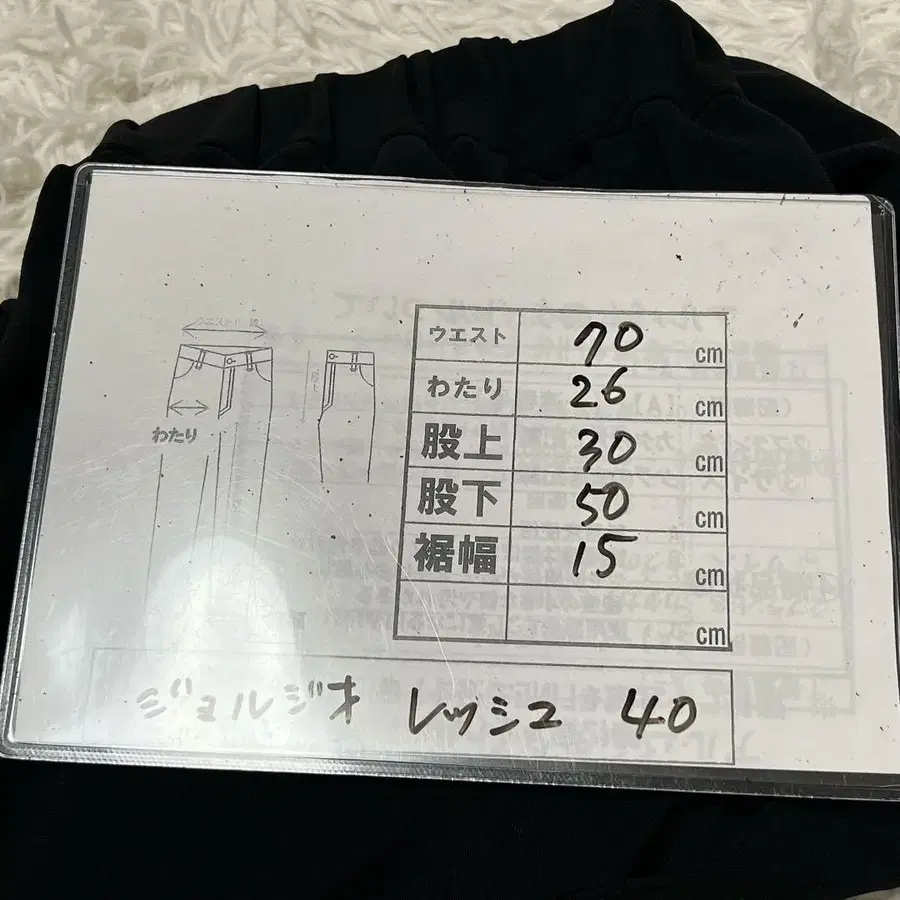 わたり
ウエスト 70 cm
わたり 26 cm
股上 30 cm
股下 50 cm
裾幅 15 cm
cm
ジョルジオ レッシュ 40